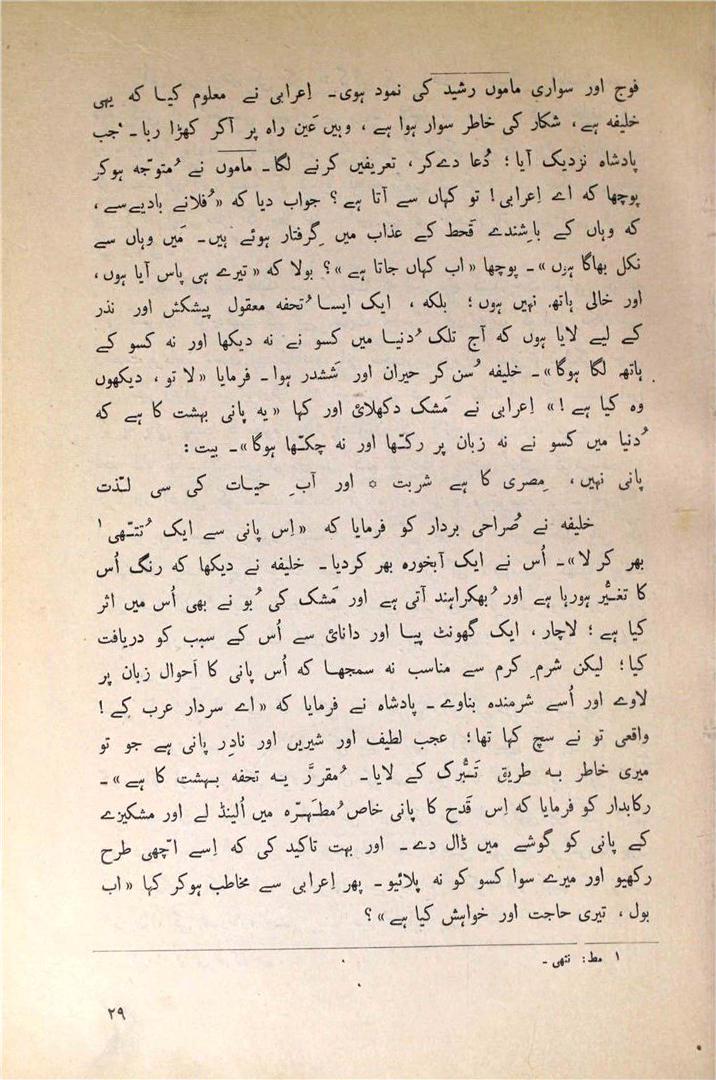 فوج اور سواری ماموں رشید کی نمود ہوی۔ اِعرابی نے معلوم کیا کہ یہی
خلیفہ ہے، شکار کی خاطر سوار ہوا ہے، وہیں عَین راہ پر آکر کھڑا رہا۔ جب
پادشاہ نزدیک آیا؛ دُعا دےکر، تعریفیں کرنے لگا۔ ماموں نے مُتوجّہ ہوکر
پوچھا کہ اے اِعرابی! تو کہاں سے آتا ہے؟ جواب دیا کہ «فُلانے بادیےسے،
کہ وہاں کے باشِندے قَحط کے عذاب میں گِرفتار ہوئے ہیں۔ مَیں وہاں سے
نکل بھاگا ہوں»۔ پوچھا «اب کہاں جاتا ہے»؟ بولا کہ «تیرے ہی پاس آیا ہوں،
اور خالی ہاتھ نہیں ہوں؛ بلکہ، ایک ایسا تُحفہ معقول پیشکش اور نذر
کے لیے لایا ہوں کہ آج تلک دُنیا میں کسو نے نہ دیکھا اور نہ کسو کے
ہاتھ لگا ہوگا»۔ خلیفہ سُن کر حیران اور شَشدر ہوا۔ فرمایا «لا تو، دیکھوں
وہ کیا ہے!» اِعرابی نے مَشک دکھلائی اور کہا «یہ پانی بہشت کا ہے کہ
دُنیا میں کسو نے نہ زبان پر رکھّا اور نہ چکھّا ہوگا»۔ بیت:
پانی نہیں، مِصری کا ہے شربت * اور آبِ حیات کی سی لذّت
خلیفہ نے صُراحی بردار کو فرمایا کہ «اِس پانی سے ایک تُتّھی¹
بھر کر لا»۔ اُس نے ایک آبخورہ بھر کردیا۔ خلیفہ نے دیکھا کہ رنگ اُس
کا تغیُّر ہورہا ہے اور بُھکراہند آتی ہے اور مَشک کی بُو نے بھی اُس میں اثر
کیا ہے؛ لاچار، ایک گھونٹ پیا اور دانائی سے اُس کے سبب کو دریافت
کیا؛ لیکن شرمِ کرم سے مناسب نہ سمجھا کہ اُس پانی کا اَحوال زبان پر
لاوے اور اُسے شرمندہ بناوے۔ پادشاہ نے فرمایا کہ «اے سردار عرب کے!
واقعی تو نے سچ کہا تھا؛ عجب لطیف اور شیریں اور نادِر پانی ہے جو تو
میری خاطر بہ طریقِ تَبُّرک کے لایا۔ مُقرّر یہ تحفہ بہشت کا ہے»۔
رکابدار کو فرمایا کہ اِس قَدح کا پانی خاص مُطہَّرہ میں اُلینڈ لے اور مشکیزے
کے پانی کو گوشے میں ڈال دے۔ اور بہت تاکید کی کہ اِسے اچّھی طرح
رکھیو اور میرے سوا کسو کو نہ پلائیو۔ پھر اِعرابی سے مخاطب ہوکر کہا «اب
بول، تیری حاجت اور خواہش کیا ہے»؟
۱ مط: نتھی۔
۲۹